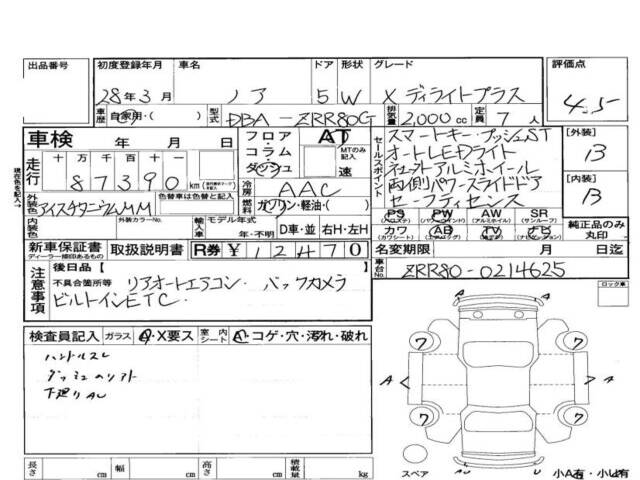 出品番号 初度登録年月 車名 ドア 形状 グレード 評価点
28年3月 ノア 5 W X ディライトプラス 4.5
車歴 自家用・( ) 型式 DBA-ZRR80G 排気量 2,000cc 定員 7人
車検 年 月 日
フロア・コラム・ダッシュ AT MTのみ記入 速
セールスポイント
スマートキー・プッシュST
オートLEDライト
アルミホイール
両側パワースライドドア
セーフティセンス
[外装] B
[内装] B
現在色を記入→
走行 十万 千百十 87390 km
冷房 AAC
外装色 アイスチタニウムMM 色替車は色替と記入
燃料 ガソリン・軽油・( )
PS PW AW SR
(パワステ) (パワーウィンド) (アルミホイール) (サンルーフ)
カワ AB TV ナビ
(カワシート) (エアバッグ)
純正品のみ丸印
内装色 外装カラーNo. 輸入車 モデル年式 年・不明 D車・並 右H・左H
新車保証書 ディーラー捺印あるもの 取扱説明書 R券 ¥12470
名変期限 月 日迄
車台No. ZRR80-0214625
注意事項 後日品【 】
不具合箇所等 リアオートエアコン・バックカメラ
ビルトインETC・
ロック車
検査員記入 ガラス A・X要ス 室内シート A・コゲ・穴・汚れ・破れ
ハンドルスレ
下廻りAU
A
7 7
A A
7 7
スペア AU U
小A有・小U有
長さ cm 幅 cm 高さ cm 積載量 kg